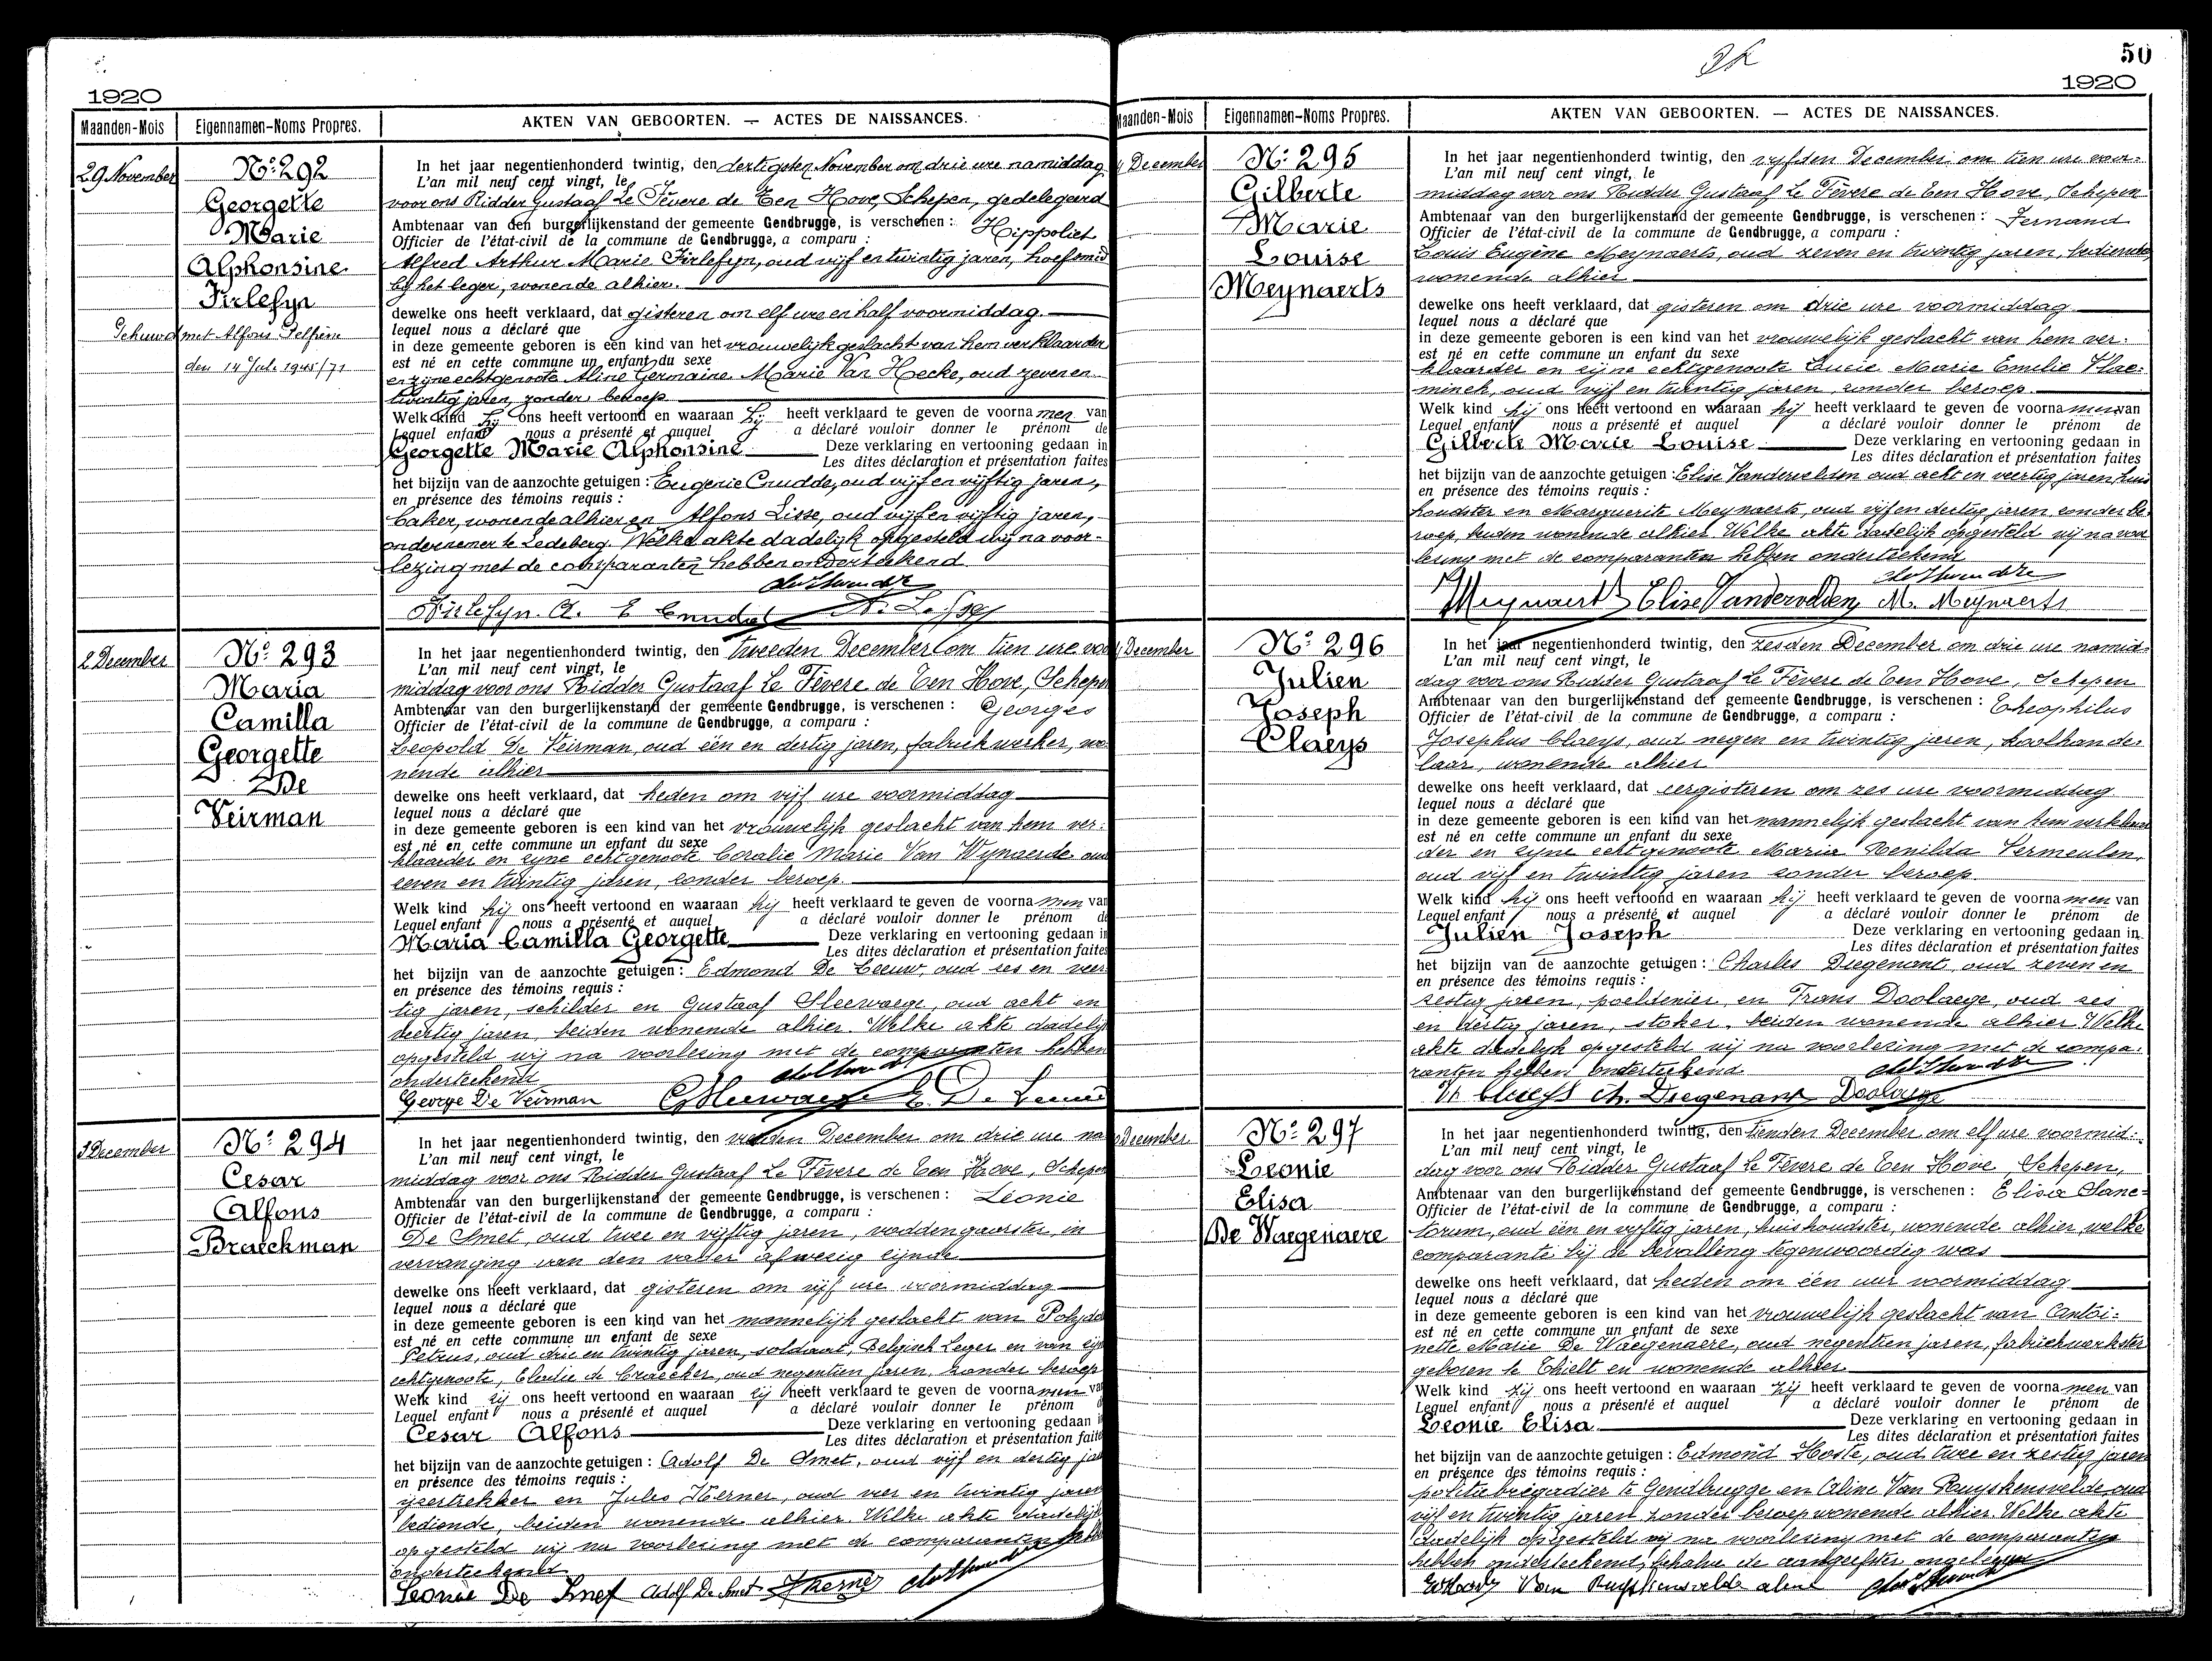 1920
Maanden-Mois
Eigennamen-Noms Propres.
AKTEN VAN GEBOORTEN. — ACTES DE NAISSANCES.
29 November
No: 292
Georgette
Marie
Alphonsine
Firlefyn
Gehuwd met Alfons Delfiene
den 14 Juli 1945/71
In het jaar negentienhonderd twintig, den dertigsten November om drie ure namiddag
L'an mil neuf cent vingt, le
voor ons Ridder Gustaaf Le Fèvere de Ten Hove, Schepen, gedelegeerd
Ambtenaar van den burgerlijkenstand der gemeente Gendbrugge, is verschenen: Hippoliet
Officier de l'état-civil de la commune de Gendbrugge, a comparu :
Alfred Arthur Marie Firlefyn, oud vijf en twintig jaren, hoefsmid
bij het leger, wonende alhier.
dewelke ons heeft verklaard, dat gisteren om elf ure en half voormiddag.
lequel nous a déclaré que
in deze gemeente geboren is een kind van het vrouwelijk geslacht van hem verklaarder
est né en cette commune un enfant du sexe
en zijne echtgenoote Aline Germaine Marie Van Hecke, oud zeven en
twintig jaren, zonder beroep
Welk kind hij ons heeft vertoond en waaraan hij heeft verklaard te geven de voornamen van
Lequel enfant nous a présenté et auquel a déclaré vouloir donner le prénom de
Georgette Marie Alphonsine Deze verklaring en vertooning gedaan in
Les dites déclaration et présentation faites
het bijzijn van de aanzochte getuigen : Eugenie Crudde, oud vijf en vijftig jaren,
en présence des témoins requis :
baker, wonende alhier en Alfons Lisse, oud vijf en vijftig jaren,
ondernemer te Ledeberg. Welke akte dadelijk opgesteld wij na voor-
lezing met de comparanten hebben onderteekend
Firlefyn. A. E Crudde A. Lisse
2 December
No: 293
Maria
Camilla
Georgette
De
Veirman
In het jaar negentienhonderd twintig, den tweeden December om tien ure voor
L'an mil neuf cent vingt, le
middag voor ons Ridder Gustaaf Le Fèvere de Ten Hove, Schepen
Ambtenaar van den burgerlijkenstand der gemeente Gendbrugge, is verschenen : Georges
Officier de l'état-civil de la commune de Gendbrugge, a comparu :
Leopold De Veirman, oud één en dertig jaren, fabriekwerker, wo
nende alhier
dewelke ons heeft verklaard, dat heden om vijf ure voormiddag
lequel nous a déclaré que
in deze gemeente geboren is een kind van het vrouwelijk geslacht van hem ver:
est né en cette commune un enfant du sexe
klaarder en zijne echtgenoote Coralie Marie Van Wynaerde oud
zeven en twintig jaren, zonder beroep.
Welk kind hij ons heeft vertoond en waaraan hij heeft verklaard te geven de voornamen van
Lequel enfant nous a présenté et auquel a déclaré vouloir donner le prénom de
Maria Camilla Georgette Deze verklaring en vertooning gedaan in
Les dites déclaration et présentation faites
het bijzijn van de aanzochte getuigen : Edmond De Leeuw, oud zes en veer
en présence des témoins requis :
tig jaren, schilder en Gustaaf Sleewaege, oud acht en
veertig jaren, beiden wonende alhier. Welke akte dadelijk
opgesteld wij na voorlezing met de comparanten hebben
onderteekend
George De Veirman G Sleewaege E. De Leeuw
3 December
No: 294
Cesar
Alfons
Braeckman
In het jaar negentienhonderd twintig, den vierden December om drie ure na
L'an mil neuf cent vingt, le
middag voor ons Ridder Gustaaf Le Fèvere de Ten Hove, Schepen
Ambtenaar van den burgerlijkenstand der gemeente Gendbrugge, is verschenen : Léonie
Officier de l'état-civil de la commune de Gendbrugge, a comparu :
De Smet, oud twee en vijftig jaren, voddengaarster, in
vervanging van den vader afwezig zijnde
dewelke ons heeft verklaard, dat gisteren om vijf ure voormiddag
lequel nous a déclaré que
in deze gemeente geboren is een kind van het mannelijk geslacht van Polydor
est né en cette commune un enfant de sexe
Petrus, oud drie en twintig jaren, soldaat, Belgisch Leger en van zijn
echtgenoote, Elodie de Craecker, oud negentien jaren, zonder beroep
Welk kind zij ons heeft vertoond en waaraan zij heeft verklaard te geven de voornamen van
Lequel enfant nous a présenté et auquel a déclaré vouloir donner le prénom d
Cesar Alfons Deze verklaring en vertooning gedaan i
Les dites déclaration et présentation faite
het bijzijn van de aanzochte getuigen : Adolf De Smet, oud vijf en dertig jar
en présence des témoins requis :
ijzertrekker en Jules Kerner, oud vier en twintig jaren
bediende, beiden wonende alhier. Welke akte dadelijk
opgesteld wij na voorlezing met de comparanten hebben
onderteekend
Leonie De Smet Adolf De Smet J Kerner
50
1920
Maanden-Mois
Eigennamen-Noms Propres.
AKTEN VAN GEBOORTEN. — ACTES DE NAISSANCES.
4 December
No: 295
Gilberte
Marie
Louise
Meynaerts
In het jaar negentienhonderd twintig, den vijfden December om tien ure voor:
L'an mil neuf cent vingt, le
middag voor ons Ridder Gustaaf Le Fèvere de Ten Hove, Schepen
Ambtenaar van den burgerlijkenstand der gemeente Gendbrugge, is verschenen : Fernand
Officier de l'état-civil de la commune de Gendbrugge, a comparu :
Louis Eugène Meynaerts, oud zeven en twintig jaren, bediende,
wonende alhier
dewelke ons heeft verklaard, dat gisteren om drie ure voormiddag
lequel nous a déclaré que
in deze gemeente geboren is een kind van het vrouwelijk geslacht van hem ver:
est né en cette commune un enfant du sexe
klaarder en zijne echtgenoote Lucie Marie Emilie Vlae:
minck, oud vijf en twintig jaren, zonder beroep.
Welk kind hij ons heeft vertoond en waaraan hij heeft verklaard te geven de voornamen van
Lequel enfant nous a présenté et auquel a déclaré vouloir donner le prénom de
Gilberte Marie Louise Deze verklaring en vertooning gedaan in
Les dites déclaration et présentation faites
het bijzijn van de aanzochte getuigen : Elise Vandervelden oud acht en veertig jaren, huis
en présence des témoins requis :
houdster en Marguerite Meynaerts, oud vijf en dertig jaren zonder be:
roep, beiden wonende alhier. Welke akte dadelijk opgesteld wij na voor
lezing met de comparanten hebben onderteekend
Meynaerts Elise Vandervelden M. Meynaerts
4 December
No: 296
Julien
Joseph
Claeys
In het jaar negentienhonderd twintig, den zesden December om drie ure namid:
L'an mil neuf cent vingt, le
dag voor ons Ridder Gustaaf Le Fèvere de Ten Hove, Schepen
Ambtenaar van den burgerlijkenstand der gemeente Gendbrugge, is verschenen : Theophilus
Officier de l'état-civil de la commune de Gendbrugge, a comparu :
Josephus Claeys, oud negen en twintig jaren, koolhande:
laar, wonende alhier
dewelke ons heeft verklaard, dat eergisteren om zes ure voormiddag
lequel nous a déclaré que
in deze gemeente geboren is een kind van het mannelijk geslacht van hem verklaar
est né en cette commune un enfant du sexe
der en zijne echtgenoote Maria Renilda Vermeulen,
oud vijf en twintig jaren zonder beroep.
Welk kind hij ons heeft vertoond en waaraan hij heeft verklaard te geven de voornamen van
Lequel enfant nous a présenté et auquel a déclaré vouloir donner le prénom de
Julien Joseph Deze verklaring en vertooning gedaan in
Les dites déclaration et présentation faites
het bijzijn van de aanzochte getuigen : Charles Diegenant, oud zeven en
en présence des témoins requis :
zestig jaren, poeldenier, en Frans Doolaege, oud zes
en dertig jaren, stoker, beiden wonende alhier Welke
akte dadelijk opgesteld wij na voorlezing met de compa:
ranten hebben onderteekend
Th Claeys Ch. Diegenant Doolaege
December
No: 297
Leonie
Elisa
De Waegenaere
In het jaar negentienhonderd twintig, den tienden December om elf ure voormid:
L'an mil neuf cent vingt, le
dag voor ons Ridder Gustaaf Le Fèvere de Ten Hove, Schepen,
Ambtenaar van den burgerlijkenstand der gemeente Gendbrugge, is verschenen : Elisa Sanc=
Officier de l'état-civil de la commune de Gendbrugge, a comparu :
torum, oud één en vijftig jaren, huishoudster, wonende alhier, welke
comparante bij de bevalling tegenwoordig was
dewelke ons heeft verklaard, dat heden om één uur voormiddag
lequel nous a déclaré que
in deze gemeente geboren is een kind van het vrouwelijk geslacht van Antoi:
est né en cette commune un enfant de sexe
nette Marie De Waegenaere, oud negentien jaren, fabriekwerkster
geboren te Thielt en wonende alhier
Welk kind zij ons heeft vertoond en waaraan zij heeft verklaard te geven de voornamen van
Lequel enfant nous a présenté et auquel a déclaré vouloir donner le prénom de
Leonie Elisa Deze verklaring en vertooning gedaan in
Les dites déclaration et présentation faites
het bijzijn van de aanzochte getuigen : Edmond Hoste, oud twee en zestig jaren
en présence des témoins requis :
politiebrigadier te Gendbrugge en Aline Van Ruyskensvelde, oud
vijf en twintig jaren zonder beroep wonende alhier. Welke akte
dadelijk opgesteld wij na voorlezing met de comparanten
hebben onderteekend, behalve de aangeefster ongeleerd
EdHoste Van Ruyskensvelde aline